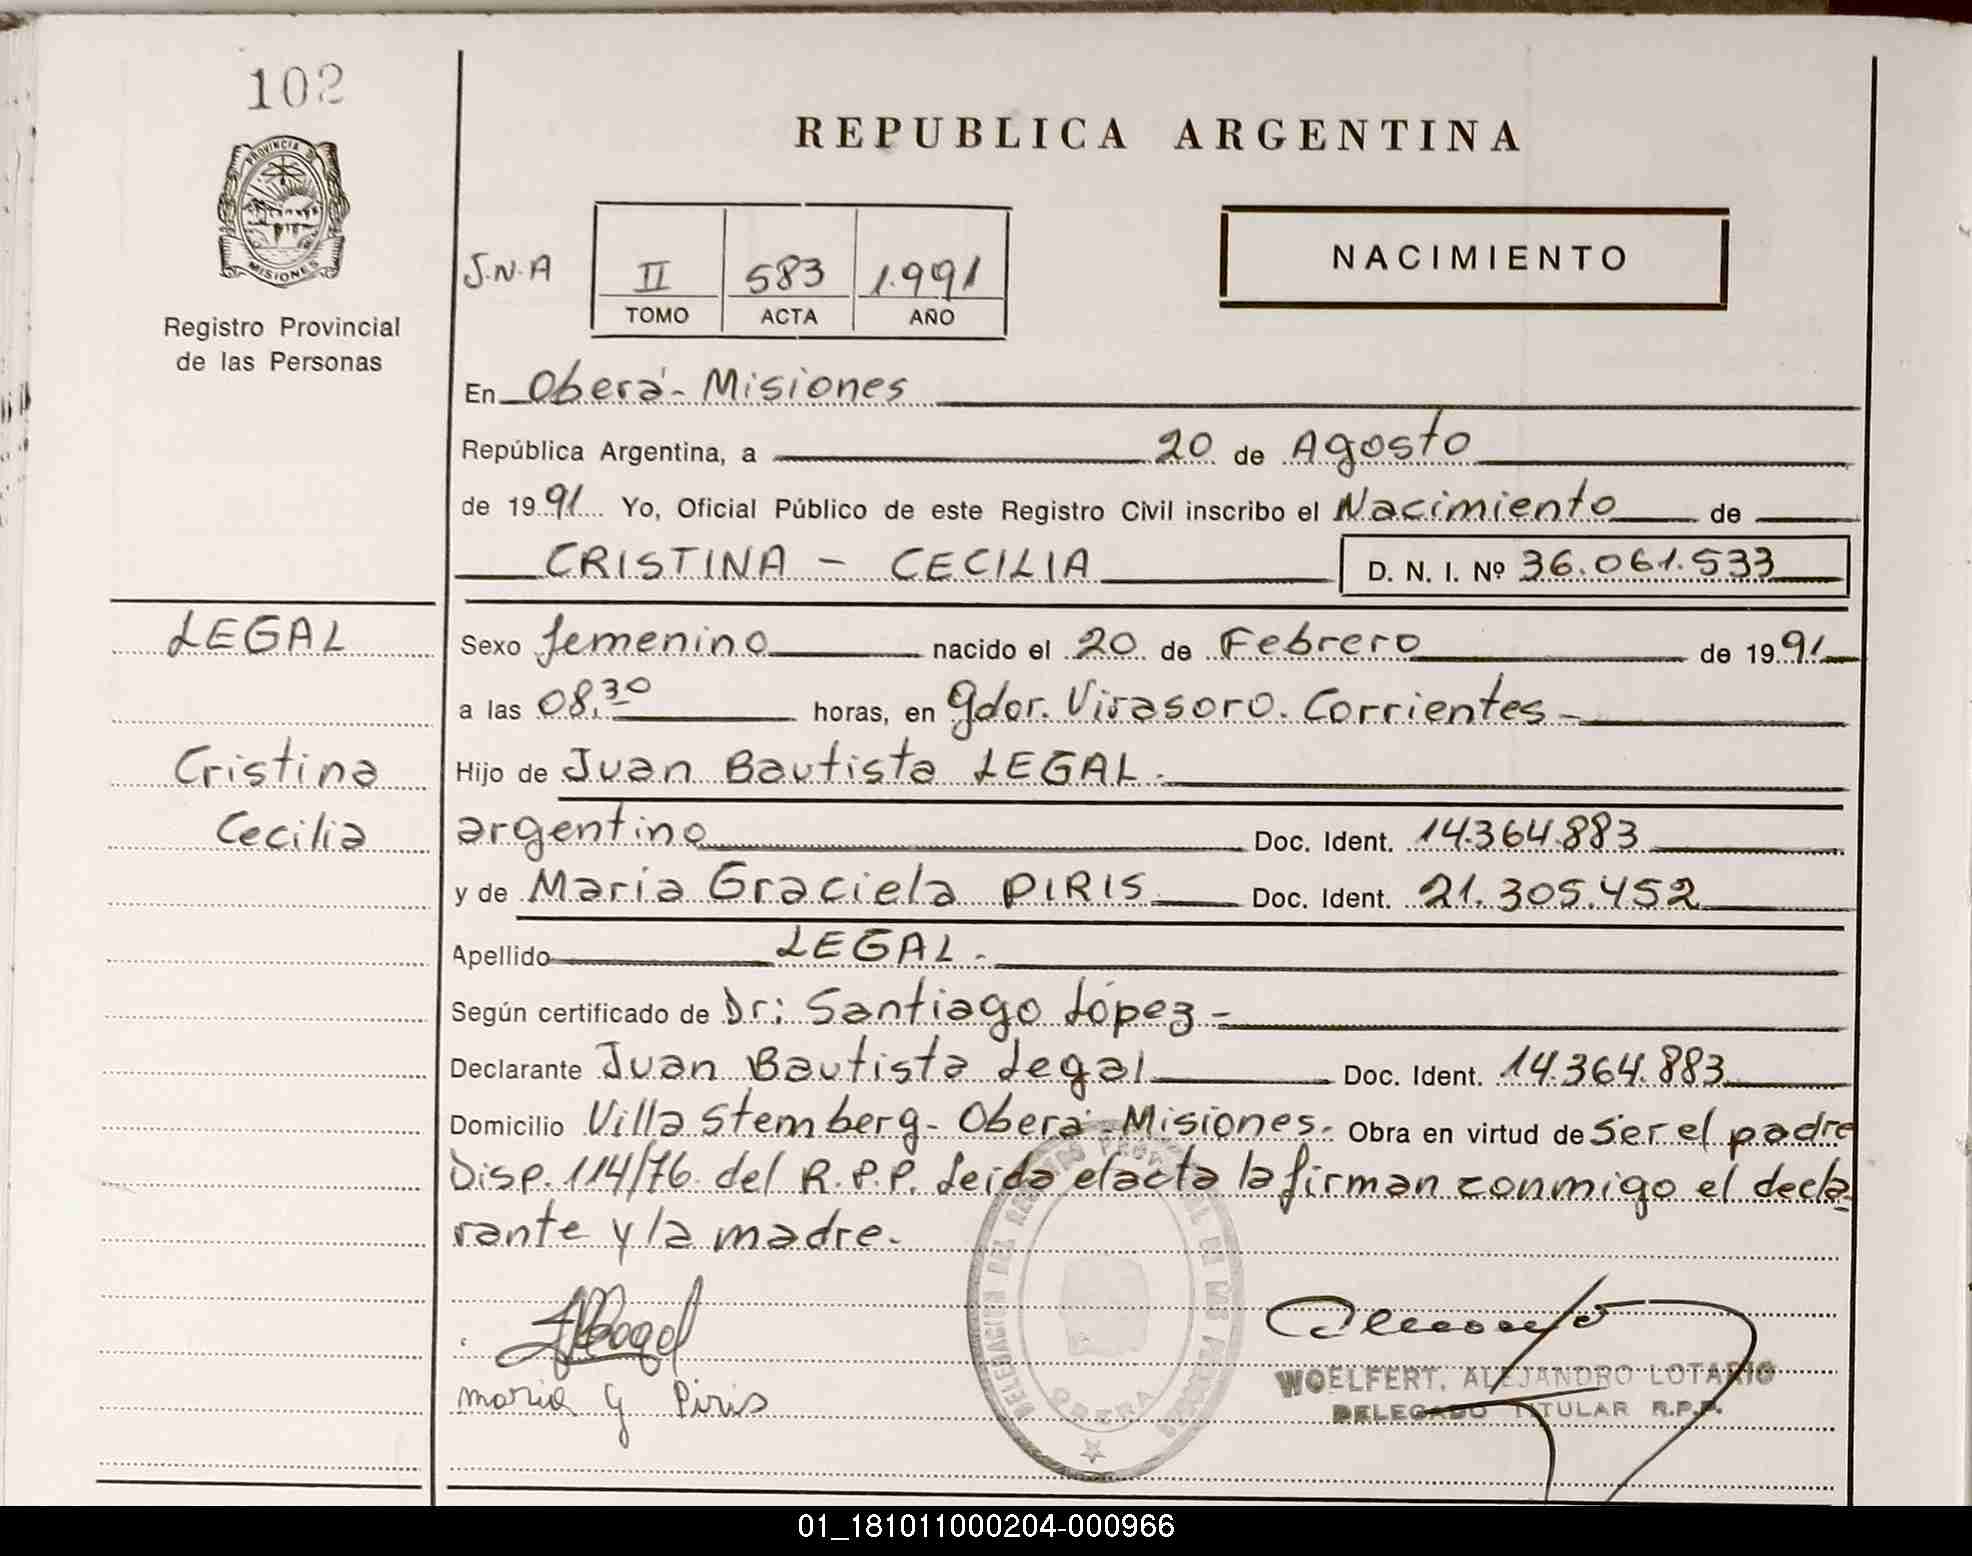 102
REPUBLICA ARGENTINA
PROVINCIA DE
MISIONES
Registro Provincial
de las Personas
J.N.A
II 583 1.991
TOMO ACTA AÑO
NACIMIENTO
En Oberá - Misiones
República Argentina, a 20 de Agosto
de 1991 Yo, Oficial Público de este Registro Civil inscribo el Nacimiento de
CRISTINA - CECILIA D. N. I. Nº 36.061.533
LEGAL
Sexo femenino nacido el 20 de Febrero de 1991
a las 08,30 horas, en Gdor. Virasoro. Corrientes -
Cristina
Hijo de Juan Bautista LEGAL.
Cecilia
argentino Doc. Ident. 14.364.883
y de Maria Graciela PIRIS Doc. Ident. 21.305.452
Apellido LEGAL.-
Según certificado de Dr: Santiago López -
Declarante Juan Bautista Legal Doc. Ident. 14.364.883
Domicilio Villa Stemberg - Oberá - Misiones. Obra en virtud de ser el padre
Disp. 114/76 del R.P.P. Leída el acta la firman conmigo el decla
rante y la madre.-
DELEGACION DEL REGISTRO PROVINCIAL DE LAS PERSONAS
OBERA
maria G Piris
WOELFERT, ALEJANDRO LOTARIO
DELEGADO TITULAR R.P.P.
01_181011000204-000966